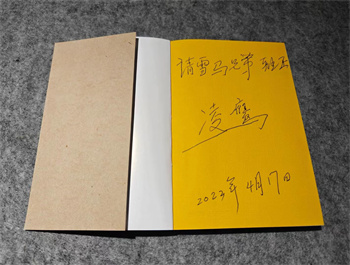 请雪马兄弟 雅正
凌鹰
2023年4月17日